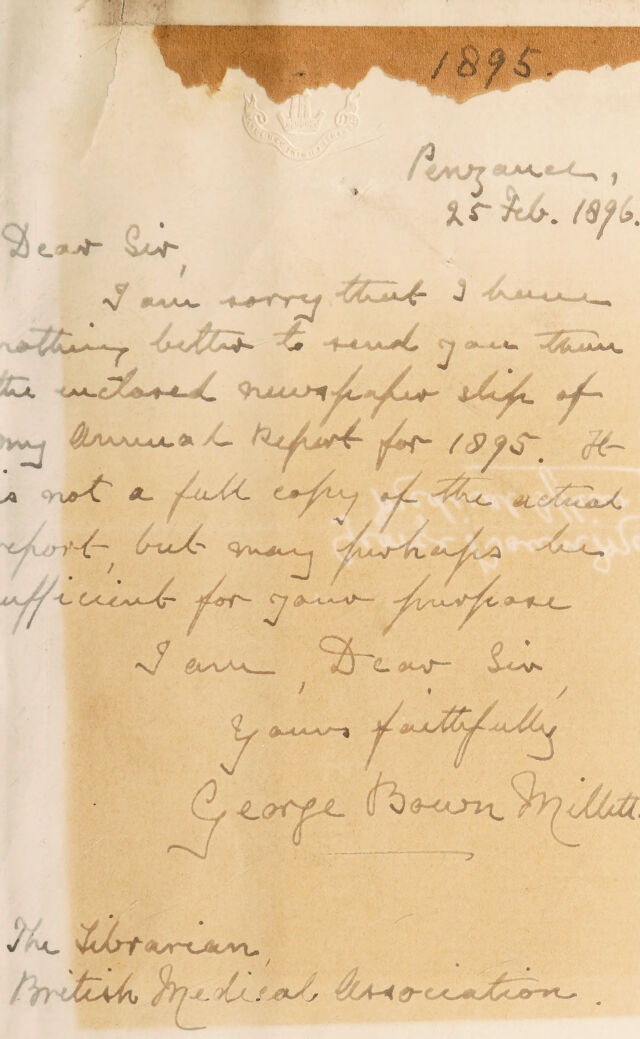 1895.
Penzance,
25 Feb. 1896.
Dear Sir,
I am sorry that I have
nothing better to send you than
the enclosed newspaper slip of
my Annual Report for 1895. It
is not a full copy of the actual
report, but may perhaps be
sufficient for your purpose
I am, Dear Sir,
Yours faithfully
George Bown Millett.
The Librarian,
British Medical Association.